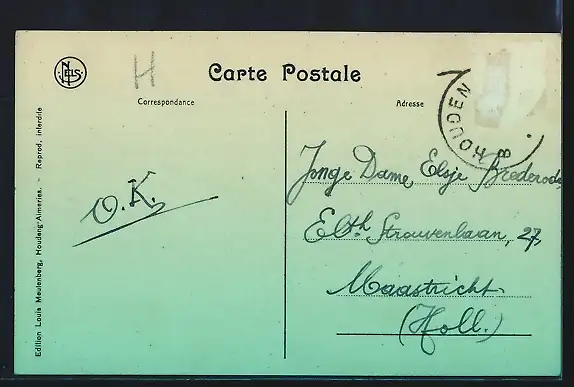 NELS
H
Carte Postale
Correspondance
Adresse
HOUDEN
8
Jonge Dame Elsje Brederode
Elbth Strouvenlaan, 27,
Maastricht
(Holl.)
O.K.
Edition Louis Meulenberg, Houdeng-Aimeries. - Reprod. interdite